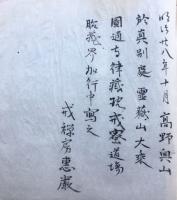 明治廿八年十月高野興山
於真別處靈嶽山大乘
圓通寺律藏院戒寮道場
胎藏界加行中寫之
戒禅房惠巌